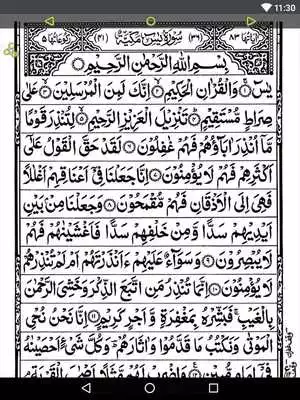 11:30
اٰيَاتُهَا ٨٣ (٣٦) سُوْرَةُ يٰسٓ مَكِّيَّةٌ (٤١) رُكُوْعَاتُهَا ٥
بِسْمِ اللّٰهِ الرَّحْمٰنِ الرَّحِيْمِ
يٰسٓ ۝١ وَالْقُرْاٰنِ الْحَكِيْمِ ۝٢ اِنَّكَ لَمِنَ الْمُرْسَلِيْنَ ۝٣ عَلٰى
صِرَاطٍ مُّسْتَقِيْمٍ ۝٤ تَنْزِيْلَ الْعَزِيْزِ الرَّحِيْمِ ۝٥ لِتُنْذِرَ قَوْمًا
مَّاۤ اُنْذِرَ اٰبَآؤُهُمْ فَهُمْ غٰفِلُوْنَ ۝٦ لَقَدْ حَقَّ الْقَوْلُ عَلٰۤى
اَكْثَرِهِمْ فَهُمْ لَا يُؤْمِنُوْنَ ۝٧ اِنَّا جَعَلْنَا فِيْۤ اَعْنَاقِهِمْ اَغْلٰلًا
فَهِيَ اِلَى الْاَذْقَانِ فَهُمْ مُّقْمَحُوْنَ ۝٨ وَجَعَلْنَا مِنْۢ بَيْنِ
اَيْدِيْهِمْ سَدًّا وَّمِنْ خَلْفِهِمْ سَدًّا فَاَغْشَيْنٰهُمْ فَهُمْ
لَا يُبْصِرُوْنَ ۝٩ وَسَوَآءٌ عَلَيْهِمْ ءَاَنْذَرْتَهُمْ اَمْ لَمْ تُنْذِرْهُمْ
لَا يُؤْمِنُوْنَ ۝١٠ اِنَّمَا تُنْذِرُ مَنِ اتَّبَعَ الذِّكْرَ وَخَشِيَ الرَّحْمٰنَ
بِالْغَيْبِ ۚ فَبَشِّرْهُ بِمَغْفِرَةٍ وَّاَجْرٍ كَرِيْمٍ ۝١١ اِنَّا نَحْنُ نُحْيِ
الْمَوْتٰى وَنَكْتُبُ مَا قَدَّمُوْا وَاٰثَارَهُمْ ؕ وَكُلَّ شَيْءٍ اَحْصَيْنٰهُ